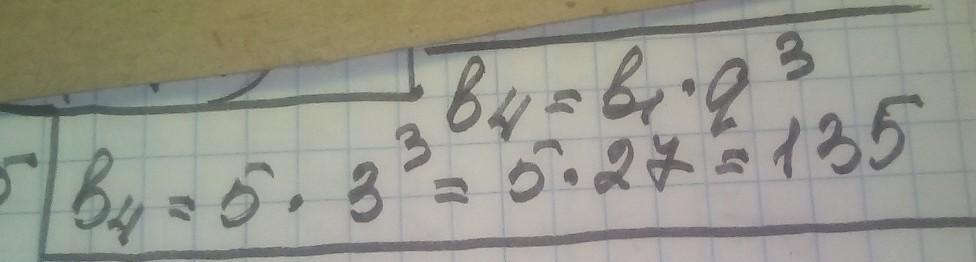 b₄ = b₁ · q³
b₄ = 5 · 3³ = 5 · 27 = 135